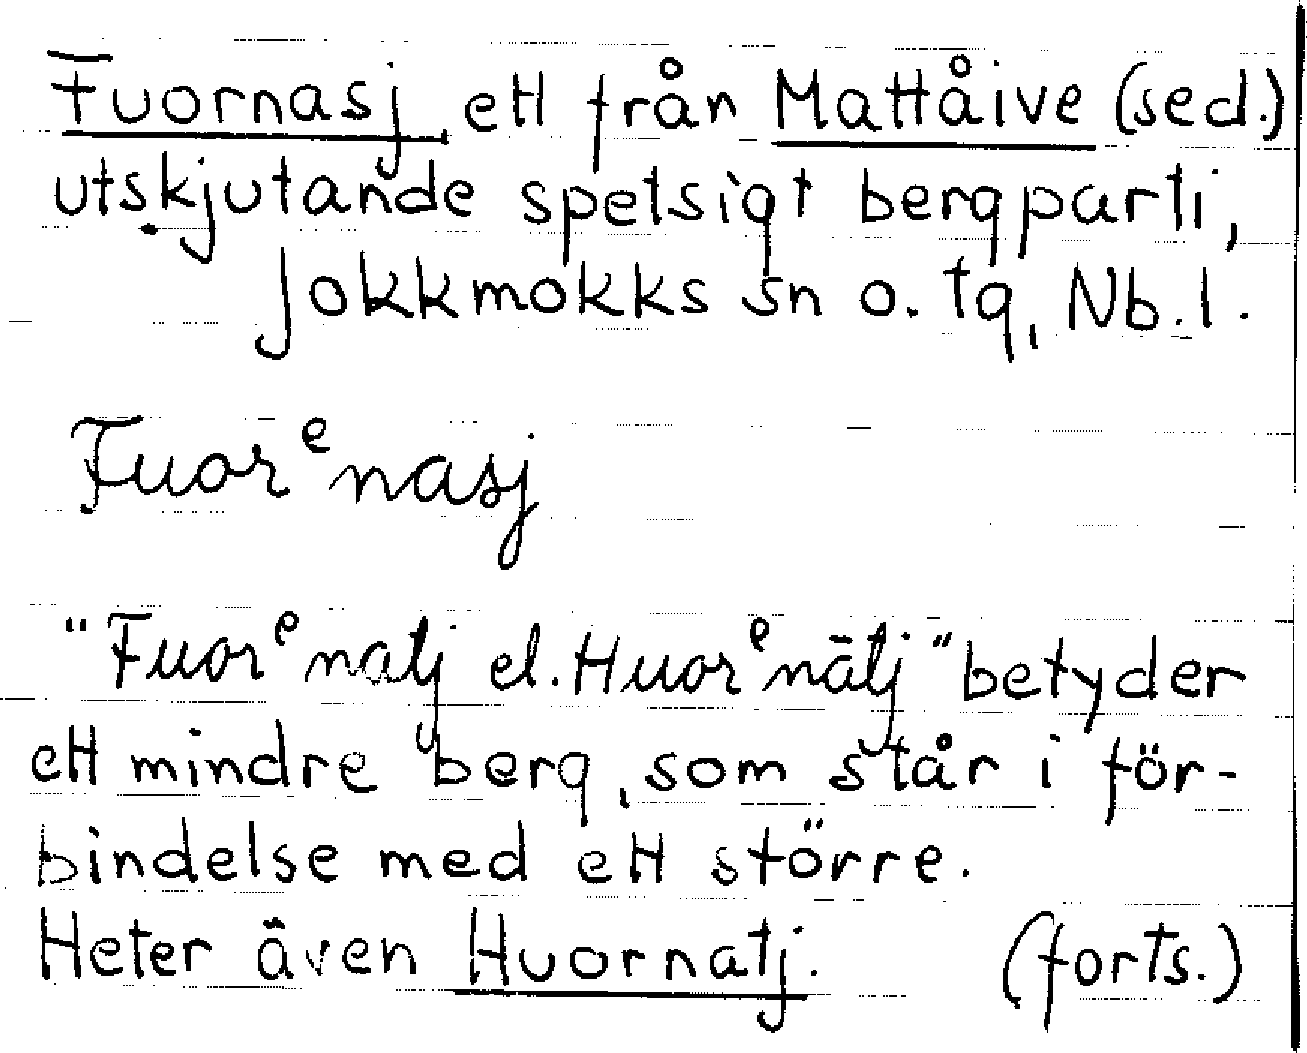 Fuornasj ett från Mattåive (sed.)
utskjutande spetsigt bergparti,
Jokkmokks sn o. tg, Nb.l.
Fuorᵉnasj
"Fuorᵉnatj el. Huorᵉnātj" betyder
ett mindre berg, som står i för-
bindelse med ett större.
Heter även Huornatj. (forts.)